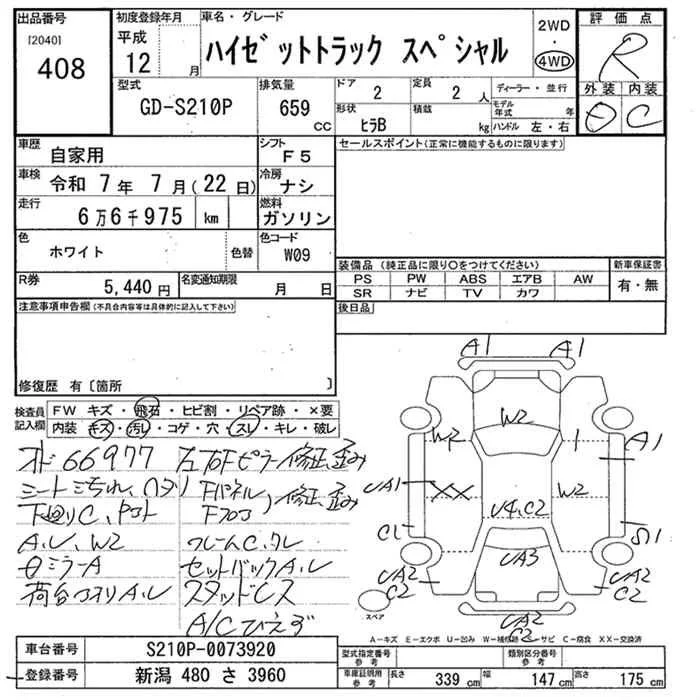 出品番号
[2040]
408
初度登録年月
平成
12 月
車名・グレード
ハイゼットトラック スペシャル
2WD
・
4WD
評価点
R
外装 内装
C
型式
GD-S210P
排気量
659
CC
ドア
2
定員
2 人
形状
ヒラB
積載
kg
ディーラー・並行
モデル年式 年
ハンドル 左・右
車歴
自家用
シフト
F5
車検
令和 7 年 7 月 (22 日)
冷房
ナシ
走行
6万6千975 km
燃料
ガソリン
色
ホワイト
色替
色コード
W09
R券
5,440円
名変通知期限
月 日
セールスポイント(正常に機能するものに限ります)
装備品 (純正品に限り○をつけてください)
PS PW ABS エアB AW
SR ナビ TV カワ
新車保証書
有・無
後日品
注意事項申告欄(不具合内容等は具体的に記入して下さい)
修復歴 有〔箇所 〕
検査員記入欄
FW キズ・飛石・ヒビ割・リペア跡・×要
内装 キズ・汚レ・コゲ・穴・スレ・キレ・破レ
66977 左右Fピラー修正、歪み
シート
Fパネル
下廻りC
修正、歪み
A.レ、W2
ミラーA
セットバックA.レ
荷台
スタッドレス
A/C
A1 A1
W2
W2 1 A1
UA1 XX U4、C2 W2
C1
UA3
UA2 C2
UA2 C2
UA2
C2
スペア
A-キズ E-エクボ U-凹み W-補修跡 S-サビ C-腐食 XX-交換済
車台番号
S210P-0073920
登録番号
新潟 480 さ 3960
型式指定番号
参考
類別区分番号
参考
車庫証明用
参考
長さ 339 cm 幅 147 cm 高さ 175 cm